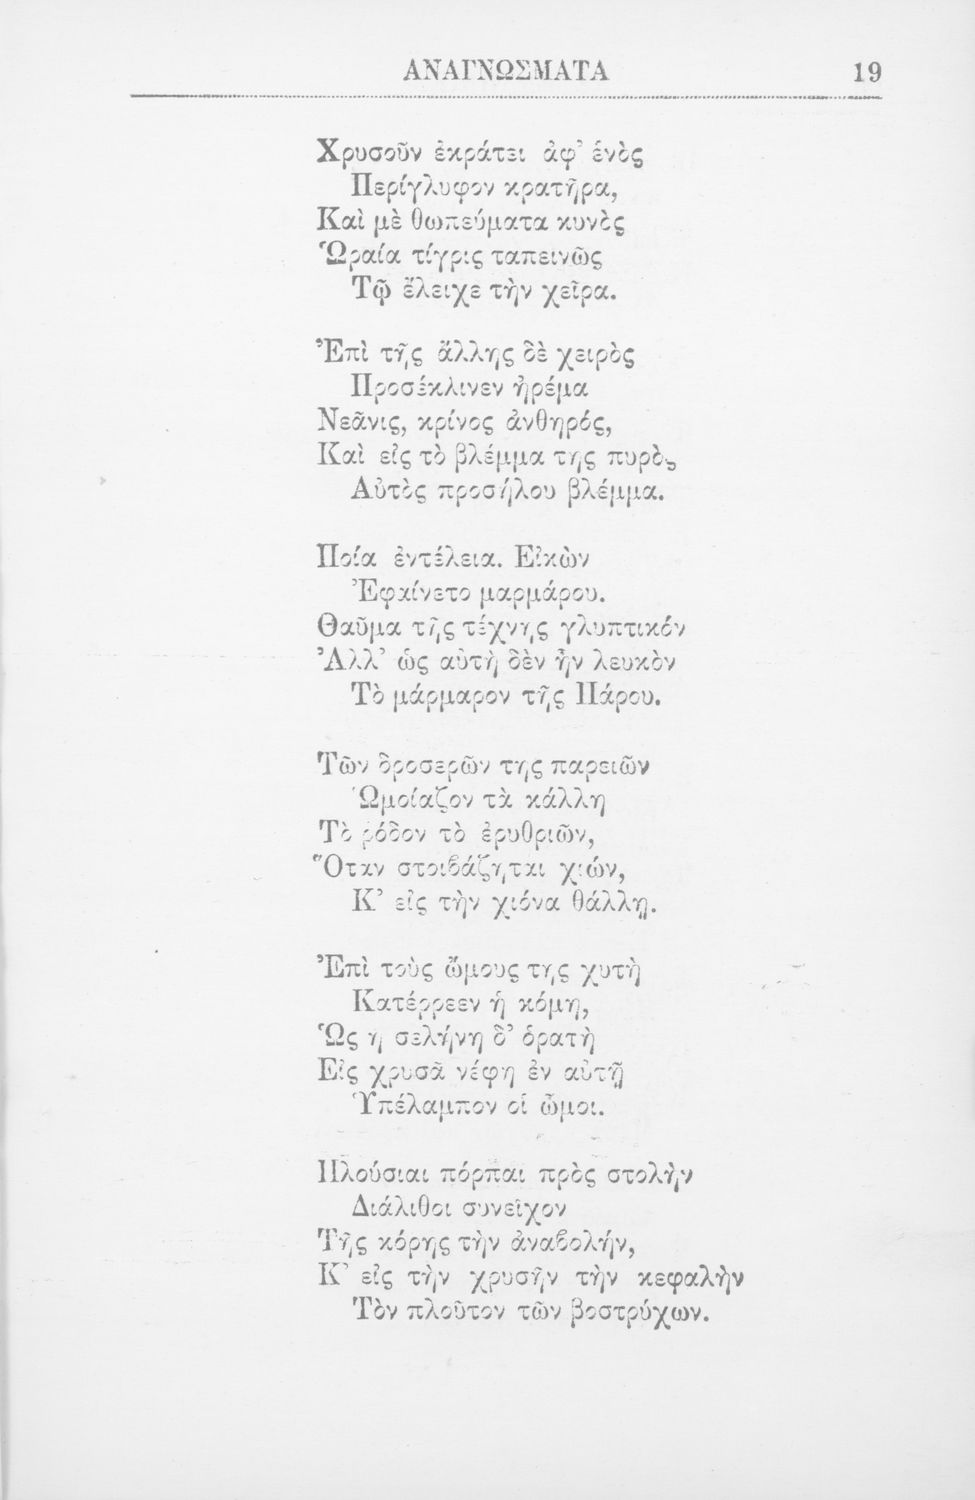 ΑΝΑΓΝΩΣΜΑΤΑ 19
Χρυσοῦν ἐκράτει ἀφ’ ἑνὸς
Περίγλυφον κρατῆρα,
Καὶ μὲ θωπεύματα κυνὸς
Ὡραία τίγρις ταπεινῶς
Τῷ ἔλειχε τὴν χεῖρα.
Ἐπὶ τῆς ἄλλης δὲ χειρὸς
Προσέκλινεν ἠρέμα
Νεᾶνις, κρίνος ἀνθηρός,
Καὶ εἰς τὸ βλέμμα της πυρὸς
Αὐτὸς προσήλου βλέμμα.
Ποία ἐντέλεια. Εἰκὼν
Ἐφαίνετο μαρμάρου.
Θαῦμα τῆς τέχνης γλυπτικόν
Ἀλλ’ ὡς αὐτὴ δὲν ἦν λευκὸν
Τὸ μάρμαρον τῆς Πάρου.
Τῶν δροσερῶν της παρειῶν
Ὡμοίαζον τὰ κάλλη
Τὸ ῥόδον τὸ ἐρυθριῶν,
Ὅταν στοιβάζηται χιών,
Κ’ εἰς τὴν χιόνα θάλλῃ.
Ἐπὶ τοὺς ὤμους της χυτὴ
Κατέρρεεν ἡ κόμη,
Ὡς ἡ σελήνη δ’ ὁρατὴ
Εἰς χρυσᾶ νέφη ἐν αὐτῇ
Ὑπέλαμπον οἱ ὦμοι.
Πλούσιαι πόρπαι πρὸς στολὴν
Διάλιθοι συνεῖχον
Τῆς κόρης τὴν ἀναβολήν,
Κ’ εἰς τὴν χρυσῆν τὴν κεφαλὴν
Τὸν πλοῦτον τῶν βοστρύχων.